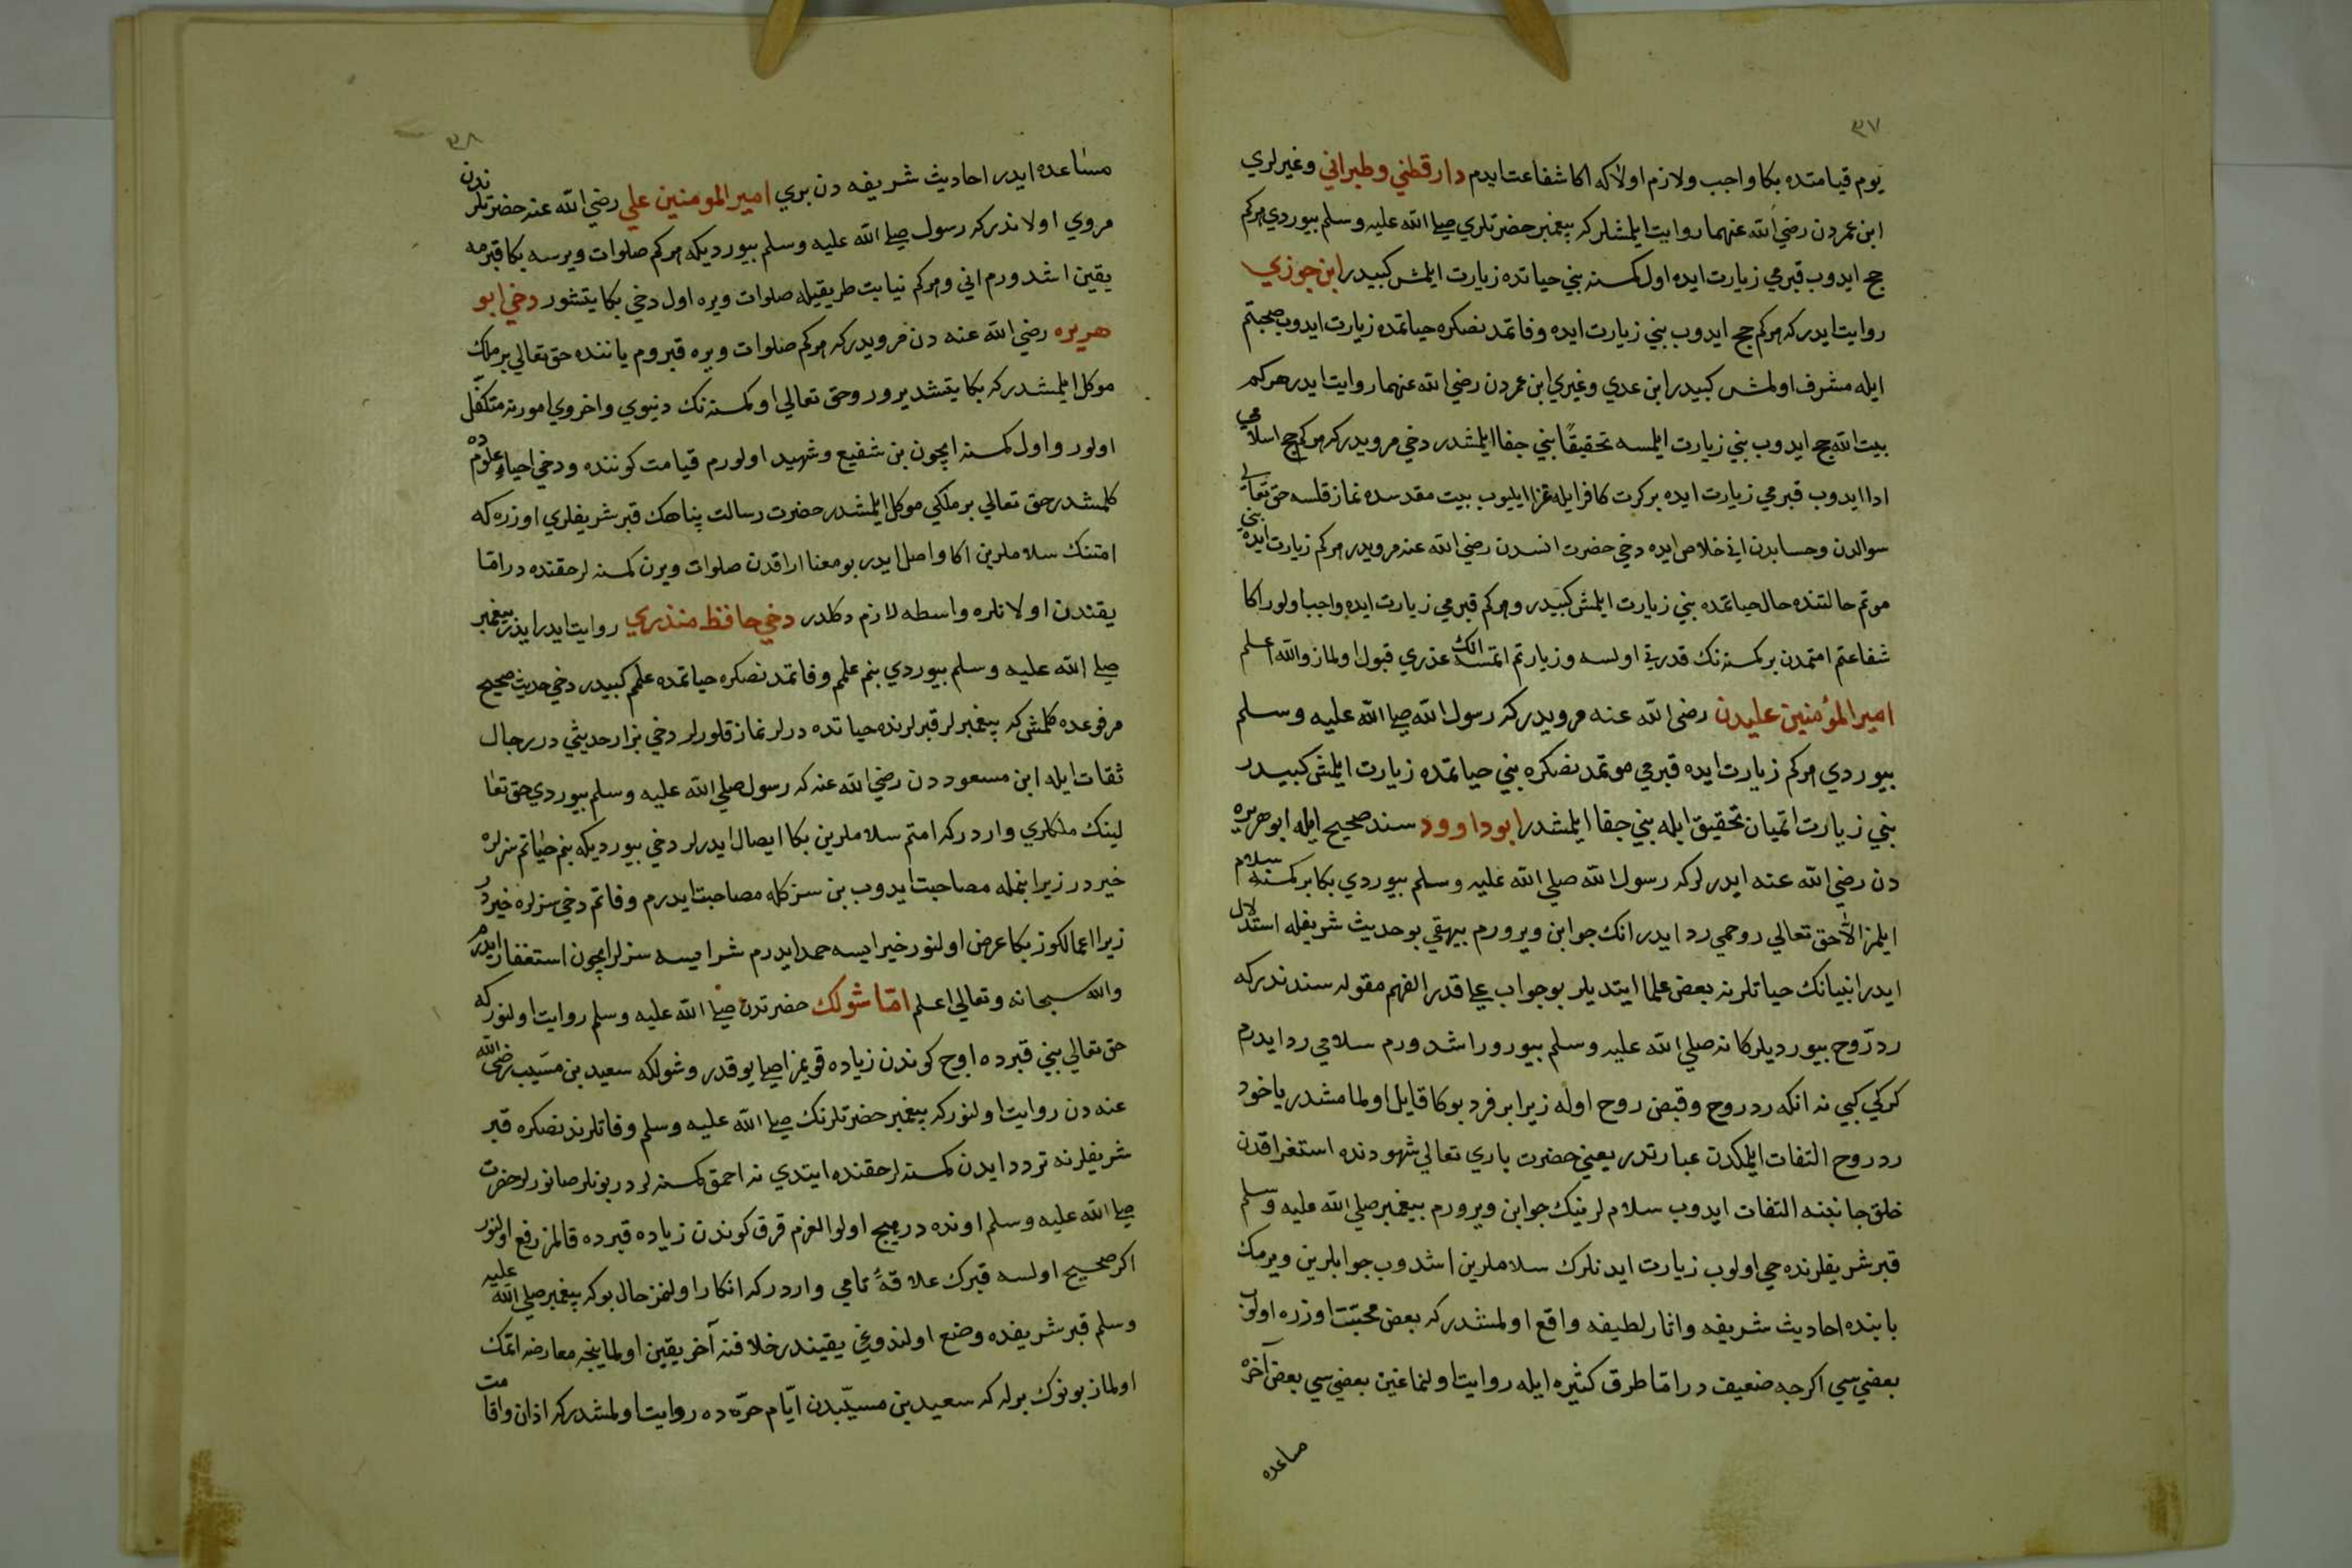 ٣٧
يوم قيامتده بكا واجب ولازم اولاكه اكا شفاعت ايدم دارقطني وطبراني وغيرلري
ابن عمردن رضي الله عنهما روايت ايلمشلر كه پيغمبر حضرتلري صلى الله عليه وسلم بيوردي هركم
حج ايدوب قبرمي زيارت ايده اول كمسنه بني حياتده زيارت ايلمش كبيدر ابن جوزي
روايت ايدر كه هركم حج ايدوب بني زيارت ايده وفاتمدنصكره حياتمده زيارت ايدوب صحبتم
ايله مشرف اولمش كبيدر ابن عدي وغيري ابن عمردن رضي الله عنهما روايت ايدر هركم
بيت الله حج ايدوب بني زيارت ايلمسه تحقيقًا بني جفا ايلمشدر دخي مرويدركه هركم حج اسلامي
ادا ايدوب قبرمي زيارت ايده بركرت كافرايله غزا ايليوب بيت مقدسده نماز قلسه حق تعالى
سوالدن وحسابدن اني خلاص ايده دخي حضرت انسدن رضي الله عنه مرويدر هركم زيارت ايده بني
موتم حالتنده حال حياتمده بني زيارت ايلمش كبيدر وهركم قبرمي زيارت ايده واجب اولور اكا
شفاعتم امتمدن بركمسنه نك قدرتي اولسه وزيارتم اتمسه انك عذري قبول اولماز والله اعلم
امير المؤمنين عليدن رضى الله عنه مرويدركه رسول الله صلى الله عليه وسلم
بيوردي هركم زيارت ايده قبرمي موتمدنصكره بني حياتمده زيارت ايلمش كبيدر
بني زيارت اتميان تحقيق ايله بني جفا ايلمشدر ابوداوود سند صحيح ايله ابوهريره
دن رضي الله عنه ايدرلركه رسول الله صلي الله عليه وسلم بيوردي بكا بركمسنه سلام
ايلمز الّا حق تعالي روحمي رد ايدر انك جوابن ويرورم بيهقي بو حديث شريفله استدلال
ايدر انبيانك حياتلرنه بعض علما ايتديلر بو جواب على قدر الفهم مقوله سندندركه
ردّ روح بيورديلر كانه صلي الله عليه وسلم بيورور اشدورم سلامي رد ايدرم
كركي كبي نه انكه رد روح وقبض روح اوله زيرا برفرد بوكا قايل اولمامشدر ياخود
رد روح التفات ايلمكدن عبارتدر يعني حضرت باري تعالي شهودنده استغراقدن
خلق جانبنه التفات ايدوب سلام لرينك جوابن ويرورم پيغمبر صلي الله عليه وسلم
قبر شريفلرنده حي اولوب زيارت ايدنلرك سلاملرين اشدوب جوابلرين ويرمك
بابنده احاديث شريفه واثار لطيفه واقع اولمشدركه بعض محبّت اوزره اولوب
بعضي سي اكرجه ضعيف در امّا طرق كثيره ايله روايت اولنماغين بعضي سي بعض آخره
مساعده
٣٨
مساعده ايدر احاديث شريفه دن بري امير المومنين علي رضي الله عنه حضرتلرندن
مروي اولانذركه رسول صلى الله عليه وسلم بيورديكه هركم صلوات ويرسه بكا قبرمه
يقين اشدورم اني وهركم نيابت طريقيله صلوات ويره اول دخي بكا يتشور دخي ابو
هريره رضي الله عنه دن مرويدركه هركم صلوات ويره قبروم ياننده حق تعالي بر ملك
موكل ايلمشدركه بكا يتشديرور وحق تعالي اوكمسنه نك دنيوي واخروي امورنه متكفّل
اولور واول كمسنه ايچون بن شفيع وشهيد اولورم قيامت كوننده ودخي احياء علومده
كلمشدر حق تعالي بر ملكي موكل ايلمشدر حضرت رسالت پناهك قبر شريفلري اوزره كه
امتنك سلاملرين اكا واصل ايدر بو معنا اراقدن صلوات ويرن كمسنه لر حقنده در امّا
يقندن اولانلره واسطه لازم دكلدر دخي حافظ منذري روايت ايدر ايدر پيغمبر
صلى الله عليه وسلم بيوردي بنم علمم وفاتمدنصكره حياتمده علمم كبيدر دخي حديث صحيح
مرفوعده كلمش كه پيغمبرلر قبرلرنده حياتده درلر نماز قلورلر دخي بزار حديثي در رجال
ثقات ايله ابن مسعود دن رضي الله عنه كه رسول صلي الله عليه وسلم بيوردي حق تعا
لينك ملكلري واردركه امتم سلاملرين بكا ايصال ايدرلر دخي بيورديكه بنم حياتم سزلره
خيردر زيرا بنمله مصاحبت ايدوب بن سزكله مصاحبت ايدرم وفاتم دخي سزلره خيردر
زيرا اعمالكوز بكا عرض اولنور خير ايسه حمد ايدرم شر ايسه سزلر ايچون استغفار ايدرم
والله سبحانه وتعالي اعلم امّا شولك حضرتدن صلى الله عليه وسلم روايت اولنوركه
حق تعالي بني قبرده اوچ كوندن زياده قويمز اصلى يوقدر وشولكه سعيد بن مسيّب رضي الله
عنه دن روايت اولنوركه پيغمبر حضرتلرنك صلى الله عليه وسلم وفاتلرندنصكره قبر
شريفلرنه تردد ايدن كمسنه لر حقنده ايتدي نه احمق كمسنه لردر بونلر صانورلر حضرت
صلى الله عليه وسلم اونده در هيچ اولو العزم قرق كوندن زياده قبرده قالمز رفع اولنور
اكر صحيح اولسه قبرك علاقهٔ تامي واردركه انكار اولنمز حال بوكه پيغمبر صلي الله عليه
وسلم قبر شريفده وضع اولندوغي يقيندر خلافنه آخر يقين اولماينجه معارضه اتمك
اولماز بونوك برله كه سعيد بن مسيّبدن ايّام حرّه ده روايت اولمشدركه اذان واقامت